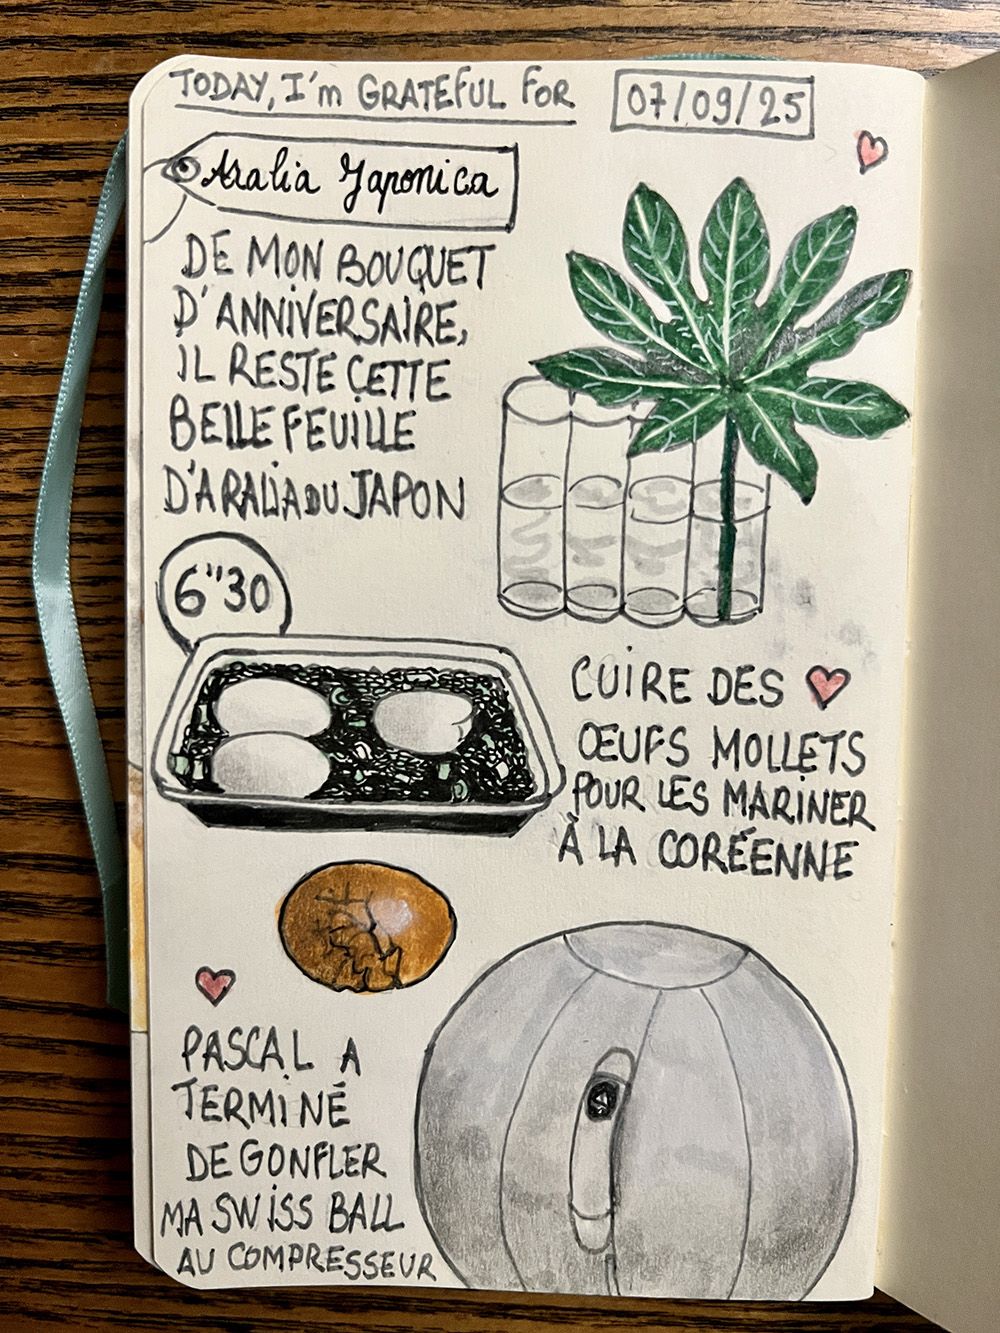 TODAY, I'm GRATEFUL FOR
07/09/25
Aralia Japonica
DE MON BOUQUET
D'ANNIVERSAIRE,
IL RESTE CETTE
BELLE FEUILLE
D'ARALIA DU JAPON
6"30
CUIRE DES
ŒUFS MOLLETS
POUR LES MARINER
À LA CORÉENNE
PASCAL A
TERMINÉ
DE GONFLER
MA SWISS BALL
AU COMPRESSEUR